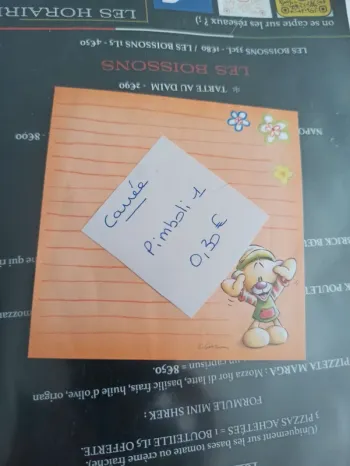 Carrée
Pimboli 1
0,30 €
on se capte sur les réseaux ? ;)
LES HORAIRE
LES BOISSONS 33cl 1€80 / LES BOISSONS 1L5 - 4€50
LES BOISSONS
* TARTE AU DAIM - 2€90
NAPO
8€00
PIZZETA MARGA : Mozza fior di latte, basilic frais, huile d'olive, origan
un caprisun = 8€50.
FORMULE MINI SHREK :
3 PIZZAS ACHETÉES = 1 BOUTEILLE 1L5 OFFERTE.
(Uniquement sur les bases tomate ou crème fraîche)